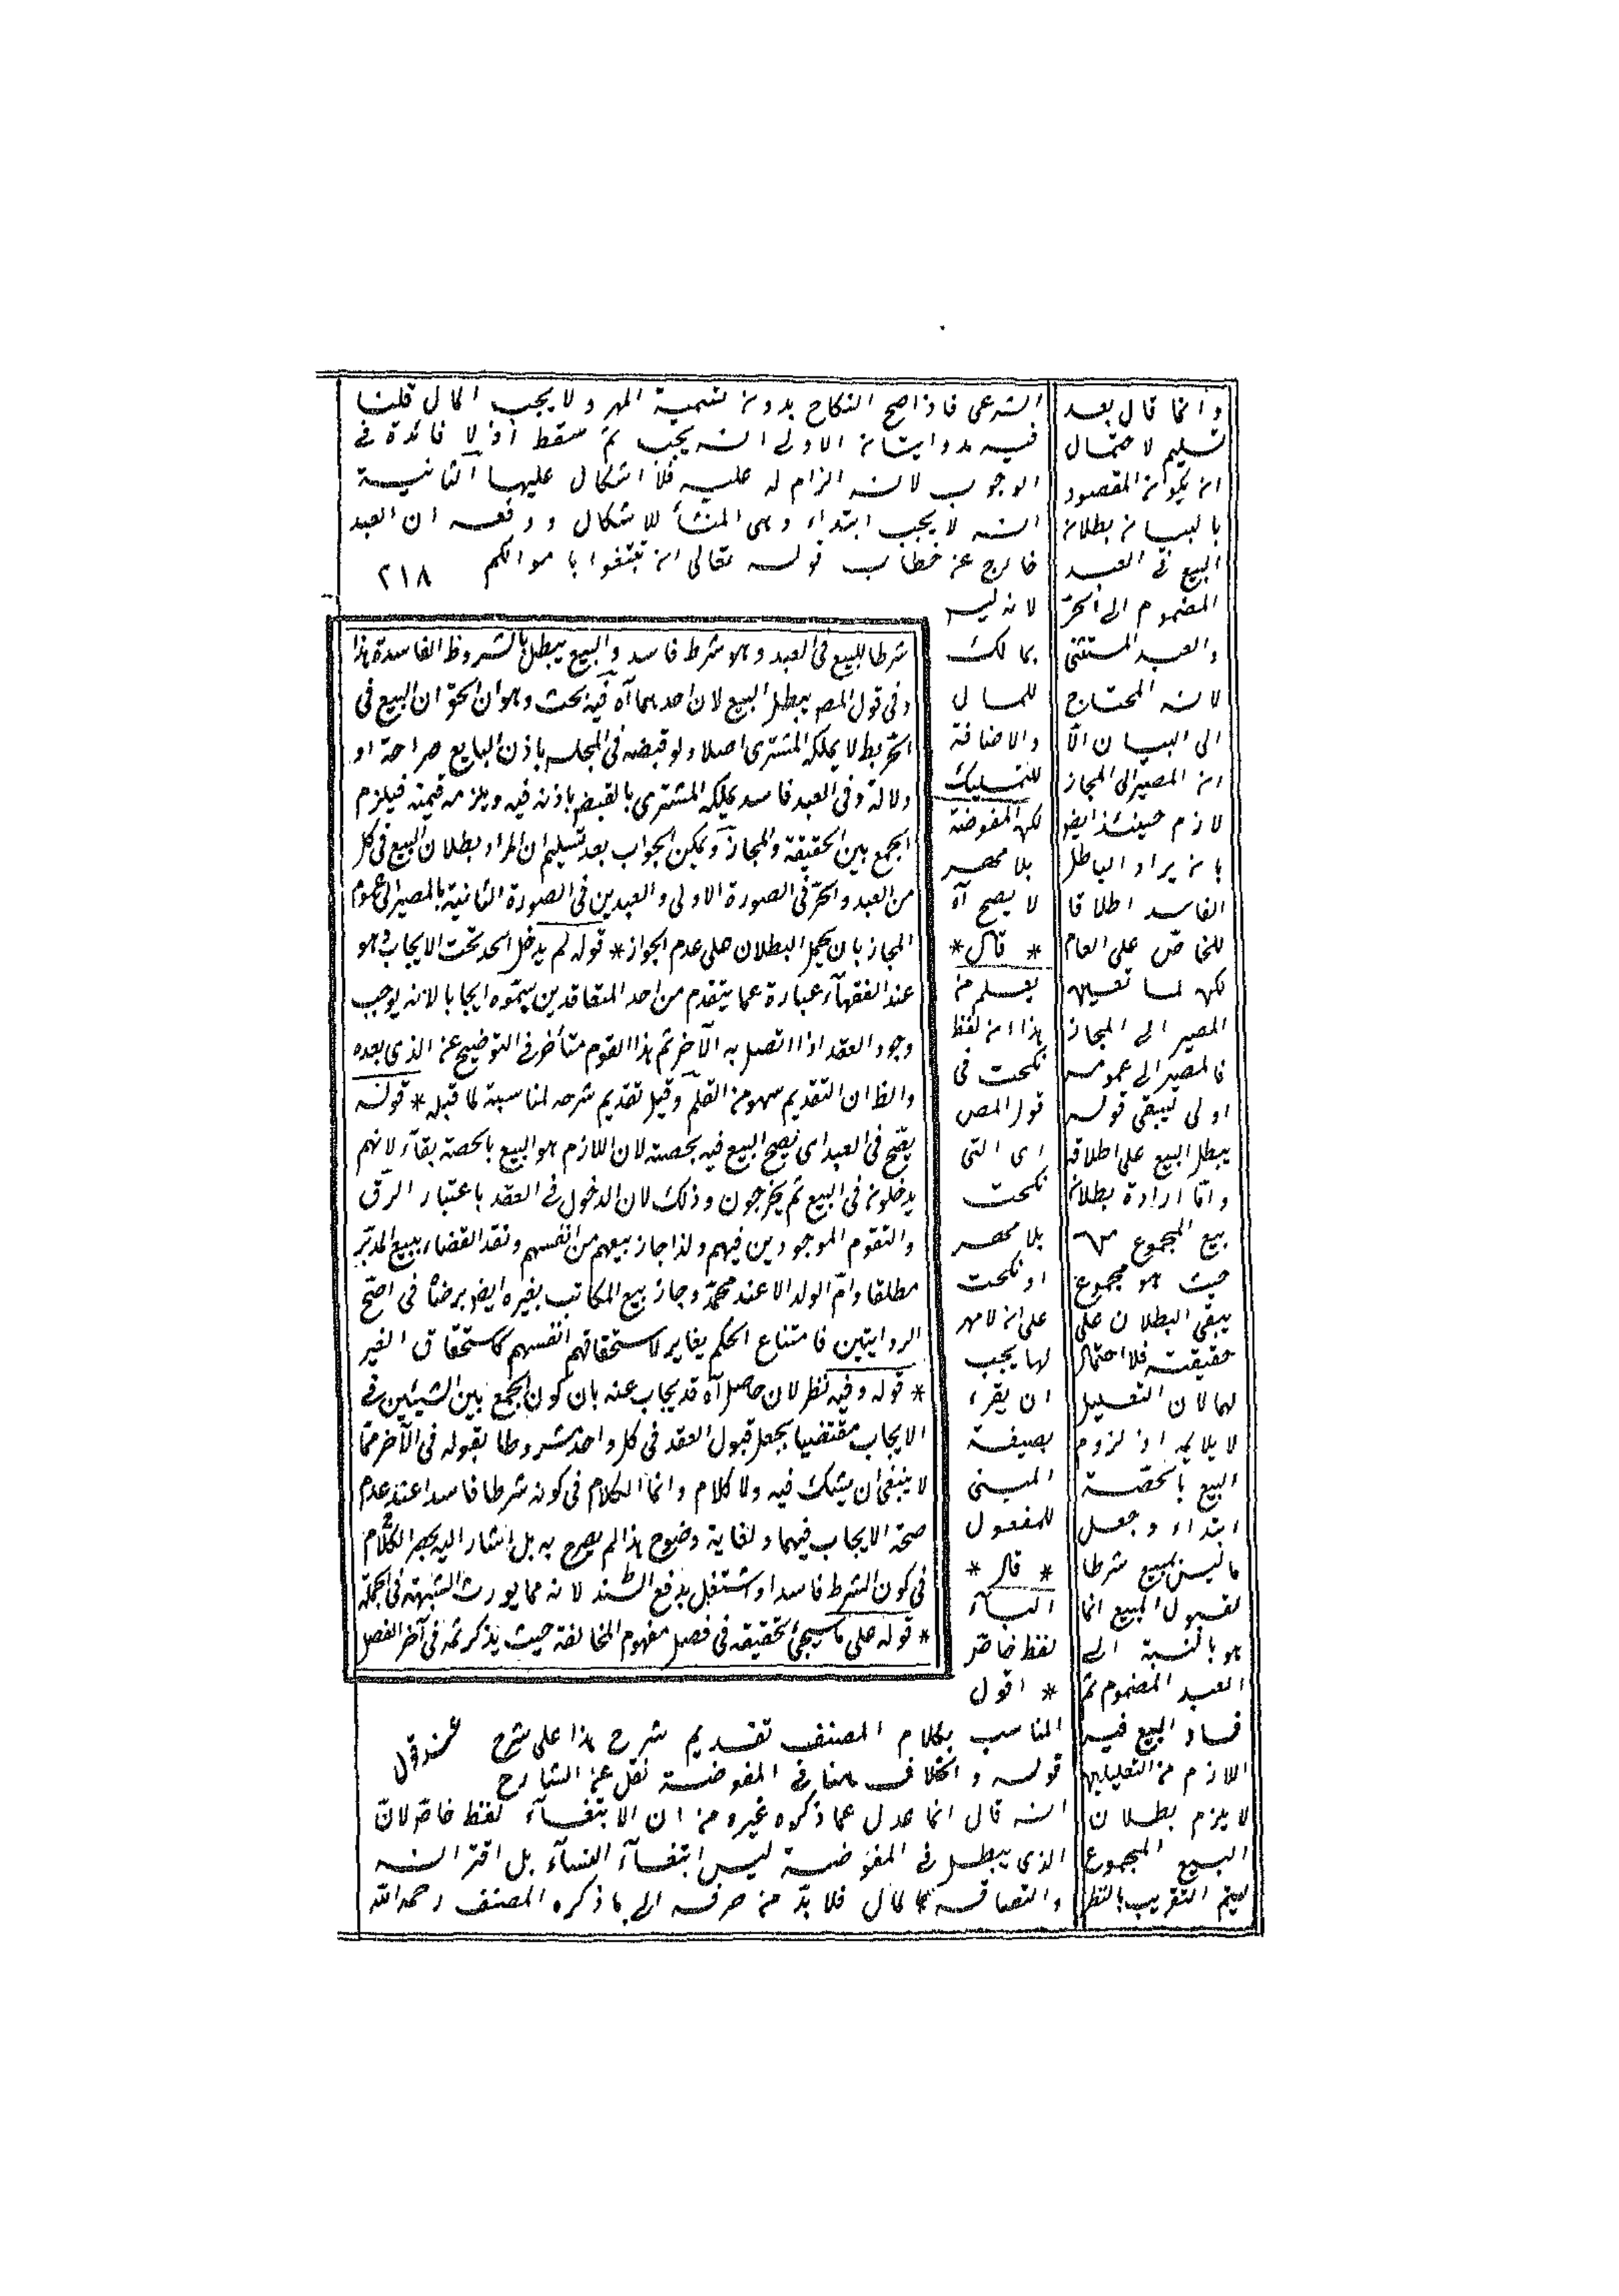 الشرعى فاذا صح النكاح بدون تسمية المهر ولا يجب المال قلنا
فيه روايتان الاولى انه يجب ثم سقط اذ لا فائدة فى
الوجوب لانه الزام له عليه فلا اشكال عليها الثانية
انه لا يجب ابتداء وهى المنشأ للاشكال ودفعه ان العبد
خارج عن خطاب قوله تعالى ان تبتغوا باموالكم
٢١٨
لانه ليس
بمالك
للمال
والاضافة
للتمليك
لكن المفوضة
بلا مهر
لا يصح آه
* قال *
يعلم من
هذا ان لفظ
نكحت فى
قول المص
اى التى
نكحت
بلا مهر
او نكحت
على ان لا مهر
لها يجب
ان يقرء
بصيغة
المبنى
للمفعول
* قال *
الباء
لفظ خاص
* اقول
المناسب بكلام المصنف تقديم شرح هذا على شرح
قوله والخلاف ههنا فى المفوضة نقل عن الشارح
انه قال انما عدل عما ذكره غيره من ان الابتغاء لفظ خاص لان
الذى يبطل فى المفوضة ليس ابتغاء النساء بل اقترانه
والتصاقه بالمال فلا بد من صرفه الى ما ذكره المصنف رحمه الله
شرطا للبيع فى العبد وهو شرط فاسد والبيع يبطل بالشروط الفاسدة هذا
وفى قول المص يبطل البيع لان احدهما آه فيه بحث وهو ان الحق ان البيع فى
الحر بط لا يملكه المشترى اصلا ولو قبضه فى المجلس باذن البايع صراحة او
دلالة وفى العبد فاسد يملكه المشترى بالقبض باذنه فيه ويلزمه قيمته فيلزم
الجمع بين الحقيقة والمجاز ويمكن الجواب بعد تسليم ان المراد بطلان البيع فى كل
من العبد والحر فى الصورة الاولى والعبدين فى الصورة الثانية بالمصير الى عموم
المجاز بان يحمل البطلان على عدم الجواز * قوله لم يدخل احد تحت الايجاب هو
عند الفقهاء عبارة عما يتقدم من احد المتعاقدين سموه ايجابا لانه يوجب
وجود العقد اذا اتصل به الآخر ثم هذا القوم متأخر فى التوضيح عن الذى بعده
والظ ان التقديم سهو من القلم وقيل تقديم شرحه لمناسبة لما قبله * قوله
يصح فى العبد اى يصح البيع فيه بحصته لان اللازم هو البيع بالحصة بقاء لانهم
يدخلون فى البيع ثم يخرجون وذلك لان الدخول فى العقد باعتبار الرق
والتقوم الموجودين فيهم ولذا جاز بيعهم من انفسهم ونفذ القضاء ببيع المدبر
مطلقا وام الولد الا عند محمد وجاز بيع المكاتب بغيره ايض برضاه فى اصح
الروايتين فامتناع الحكم يغاير لاستحقاقهم انفسهم كاستحقاق الغير
* قوله وفيه نظر لان حاصل آه قد يجاب عنه بان كون الجمع بين الشيئين فى
الايجاب مقتضيا بجعل قبول العقد فى كل واحد مشروطا بقبوله فى الآخر مما
لا ينبغى ان يشك فيه ولا كلام وانما الكلام فى كونه شرطا فاسدا عند عدم
صحة الايجاب فيهما ولغاية وضوح هذا لم يصرح به بل اشار اليه بحصر الكلام
فى كون الشرط فاسدا واشتغل بدفع السند لانه مما يورث الشبهة فى الجملة
* قوله على ما سيجئ تحقيقه فى فصل مفهوم المخالفة حيث يذكر ثمه فى آخر الفصل
وانما قال بعد
تسليم لاحتمال
ان يكون المقصود
بالبيان بطلان
البيع فى العبد
المضموم الى الحر
والعبد المستثنى
لانه المحتاج
الى البيان الا
ان المصير الى المجاز
لازم حينئذ ايض
بان يراد الباطل
الفاسد اطلاقا
للخاص على العام
لكن لما تعين
المصير الى المجاز
فالمصير الى عمومه
اولى ليبقى قوله
يبطل البيع على اطلاقه
واما ارادة بطلان
بيع المجموع من
حيث هو مجموع
يبقى البطلان على
حقيقته فلا احتمال
لها لان التعليل
لا يلايمه اذ لزوم
البيع بالحصة
ابتداء وجعل
ما ليس بمبيع شرطا
لقبول المبيع انما
هو بالنسبة الى
العبد المضموم ثم
فساد البيع فيه
اللازم من التعليلين
لا يلزم بطلان
البيع المجموع
ليتم التقريب بالنظر